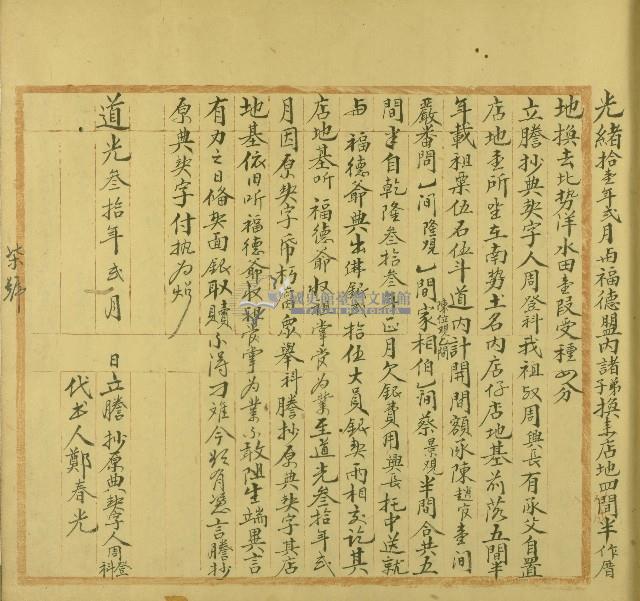 光緒拾壹年弍月与福德盟內諸弟子換來店地四間半作厝
地換去北勢洋水田壹段受種四分
立謄抄典契字人周登科我祖叔周興長有承父自置
店地壹所坐在南勢土名內店仔店地基前落五間半
年載租粟伍石伍斗道內計開間額承陳趙寅壹間
陳位現乙間
嚴番問乙間隆現乙間家相伯乙間蔡景觀半間合共五
間半自乾隆叁拾叁年正月欠銀費用興長托中送就
与福德爺典出佛銀弍拾伍大員銀契兩相交訖其
店地基听福德爺收租掌管為業至道光叁拾年弍
月因原契字帋朽眾舉科謄抄原典契字其店
地基依旧听福德爺收租掌管為業不敢阻生端異言
有力之日備契面銀取贖不得刁难今欲有憑立謄抄
原典契字付执為炤
道光叁拾年弍月 日立謄抄原典契字人周登科
代书人鄭春光
國史館臺灣文獻館
TAIWAN HISTORICA